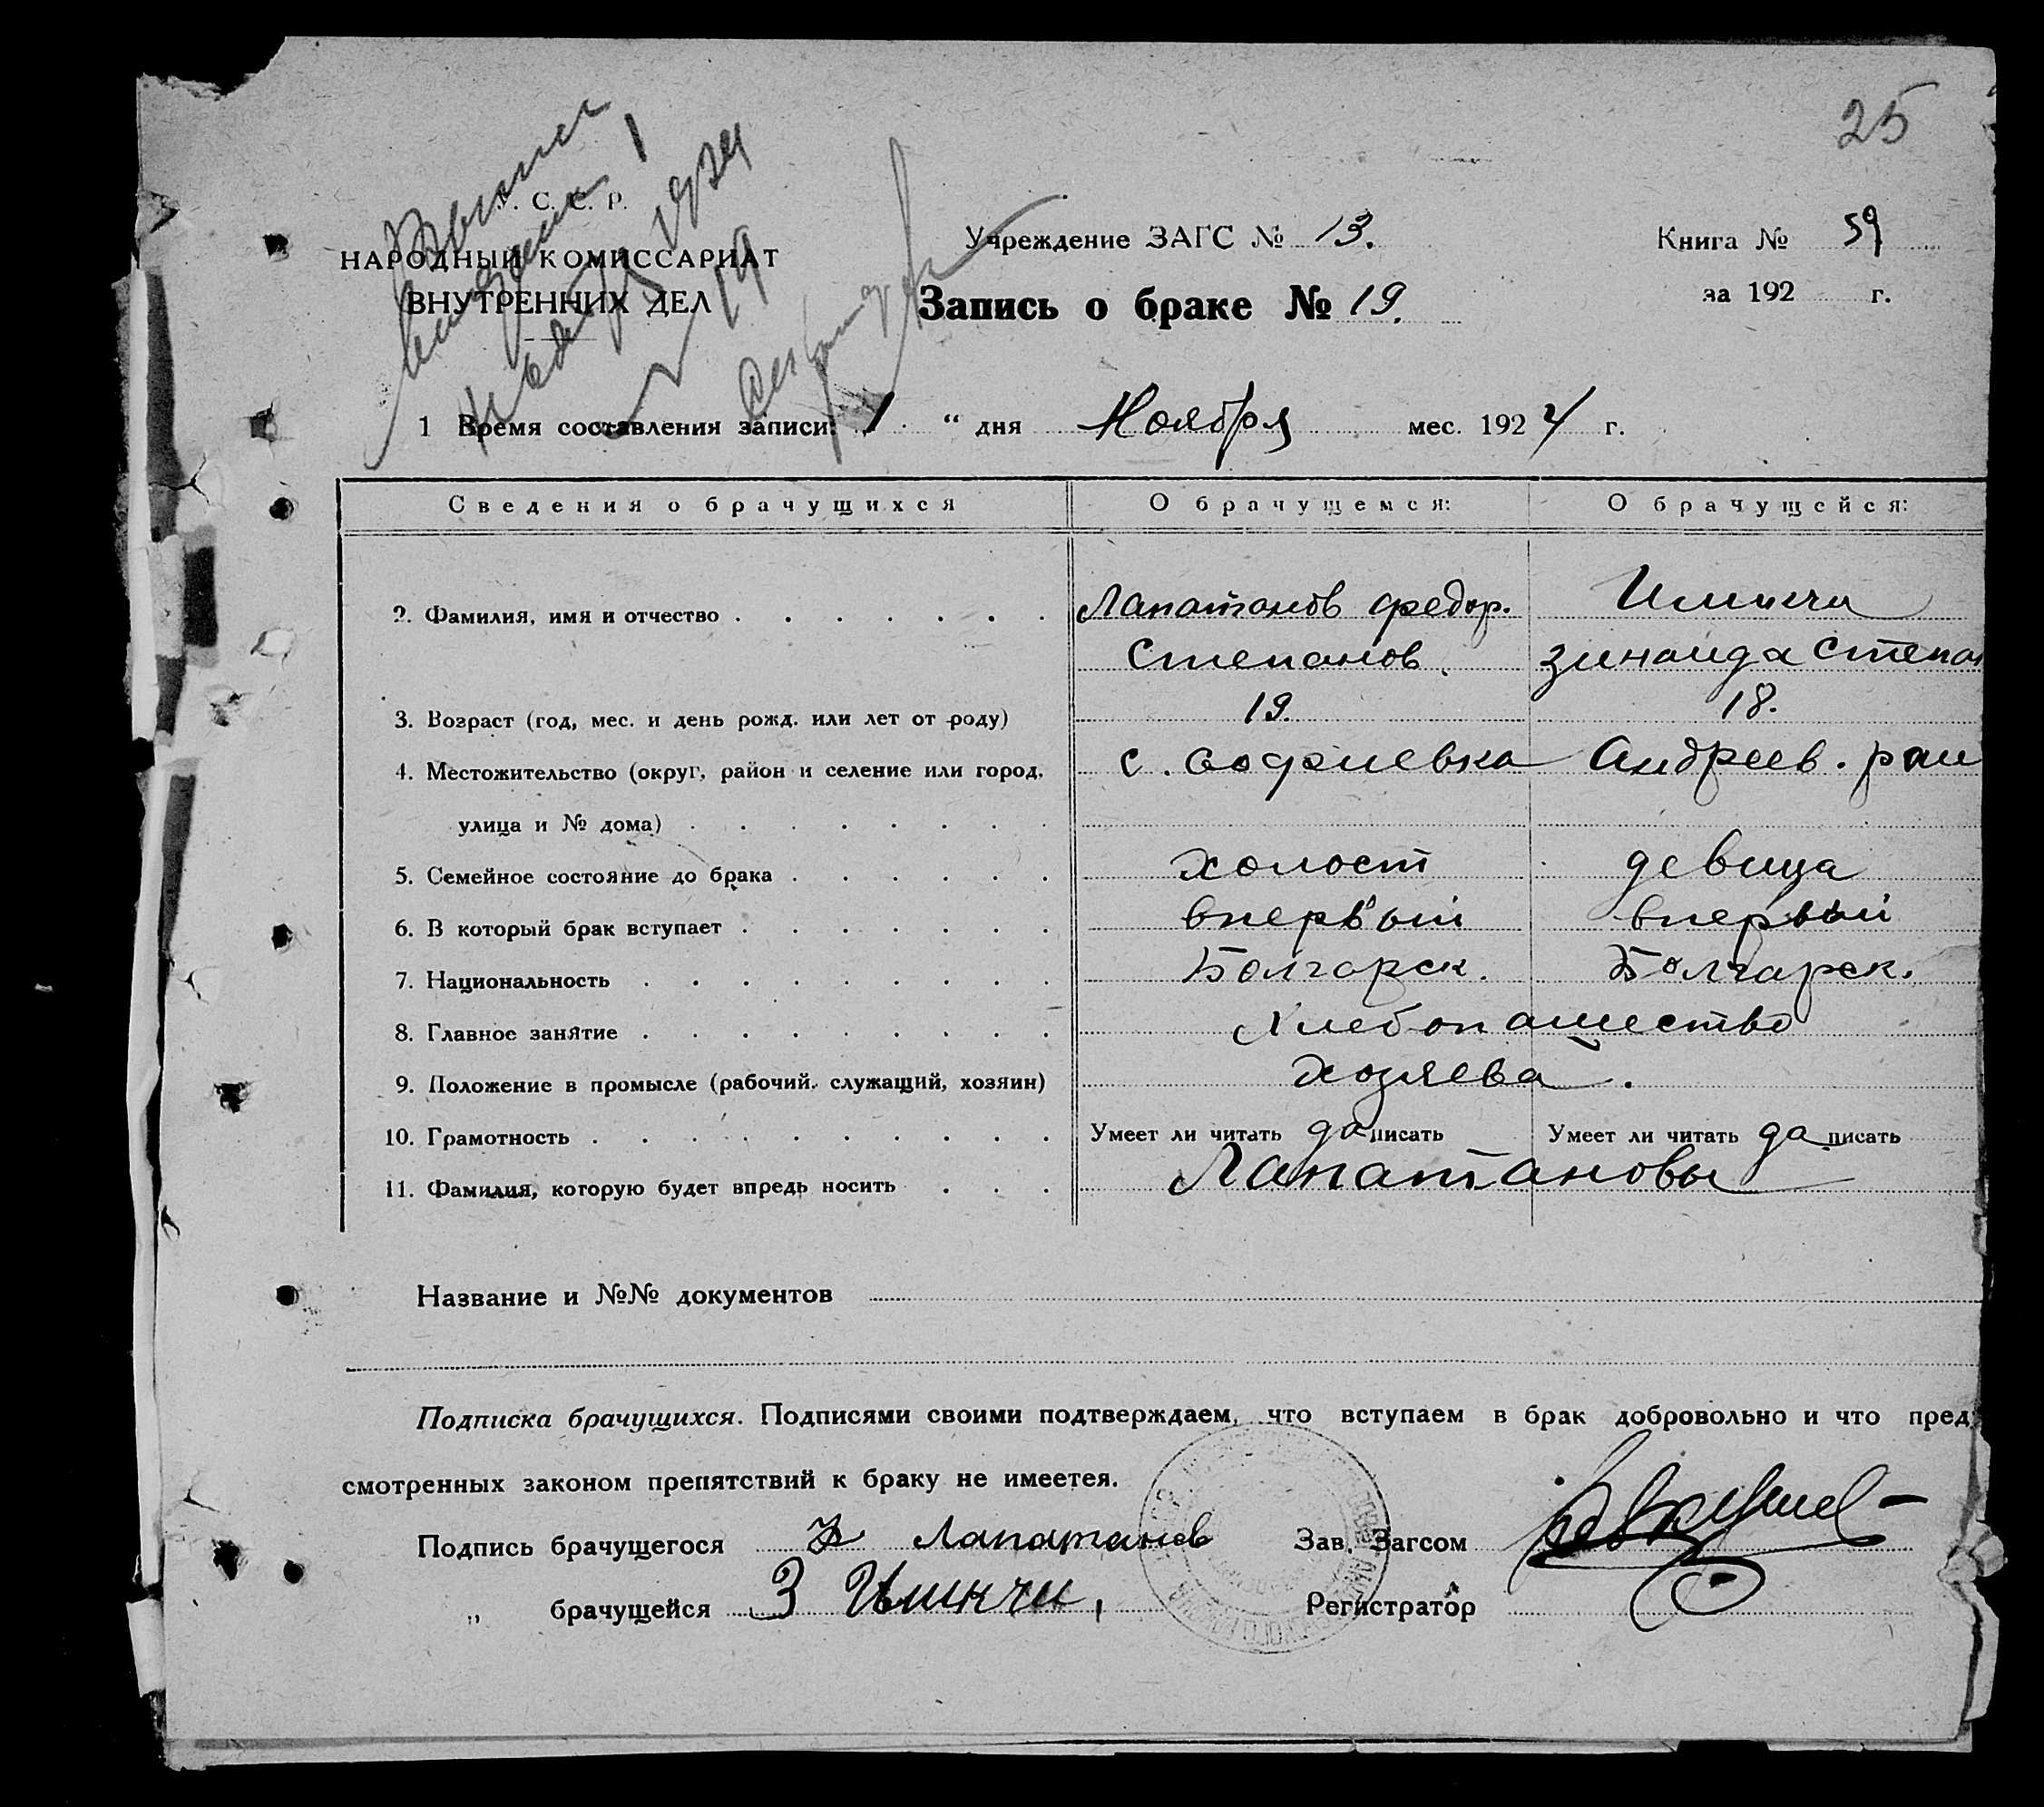 25
С. С. Р.
НАРОДНЫЙ КОМИССАРИАТ
ВНУТРЕННИХ ДЕЛ
Учреждение ЗАГС № 13.
Книга № 59
Запись о браке № 19.
за 192 г.
1924
19
1 Время составления записи: 1 “ дня Ноября мес. 1924 г.
Сведения о брачущихся О брачущемся: О брачущейся:
2. Фамилия, имя и отчество Лапатанов Федор.
Степанов. Зинаида Степан
3. Возраст (год, мес. и день рожд. или лет от роду) 19. 18.
4. Местожительство (округ, район и селение или город, с. Софиевка Андреев. рай
улица и № дома)
5. Семейное состояние до брака холост девица
6. В который брак вступает впервый впервый
7. Национальность Болгарск. Болгарск.
8. Главное занятие Хлебопашество
9. Положение в промысле (рабочий, служащий, хозяин) хозяева.
10. Грамотность Умеет ли читать да писать Умеет ли читать да писать
11. Фамилия, которую будет впредь носить Лапатановы
Название и №№ документов
Подписка брачущихся. Подписями своими подтверждаем, что вступаем в брак добровольно и что пред
смотренных законом препятствий к браку не имеется.
Подпись брачущегося Ф Лапатанов Зав. Загсом
„ брачущейся З Регистратор